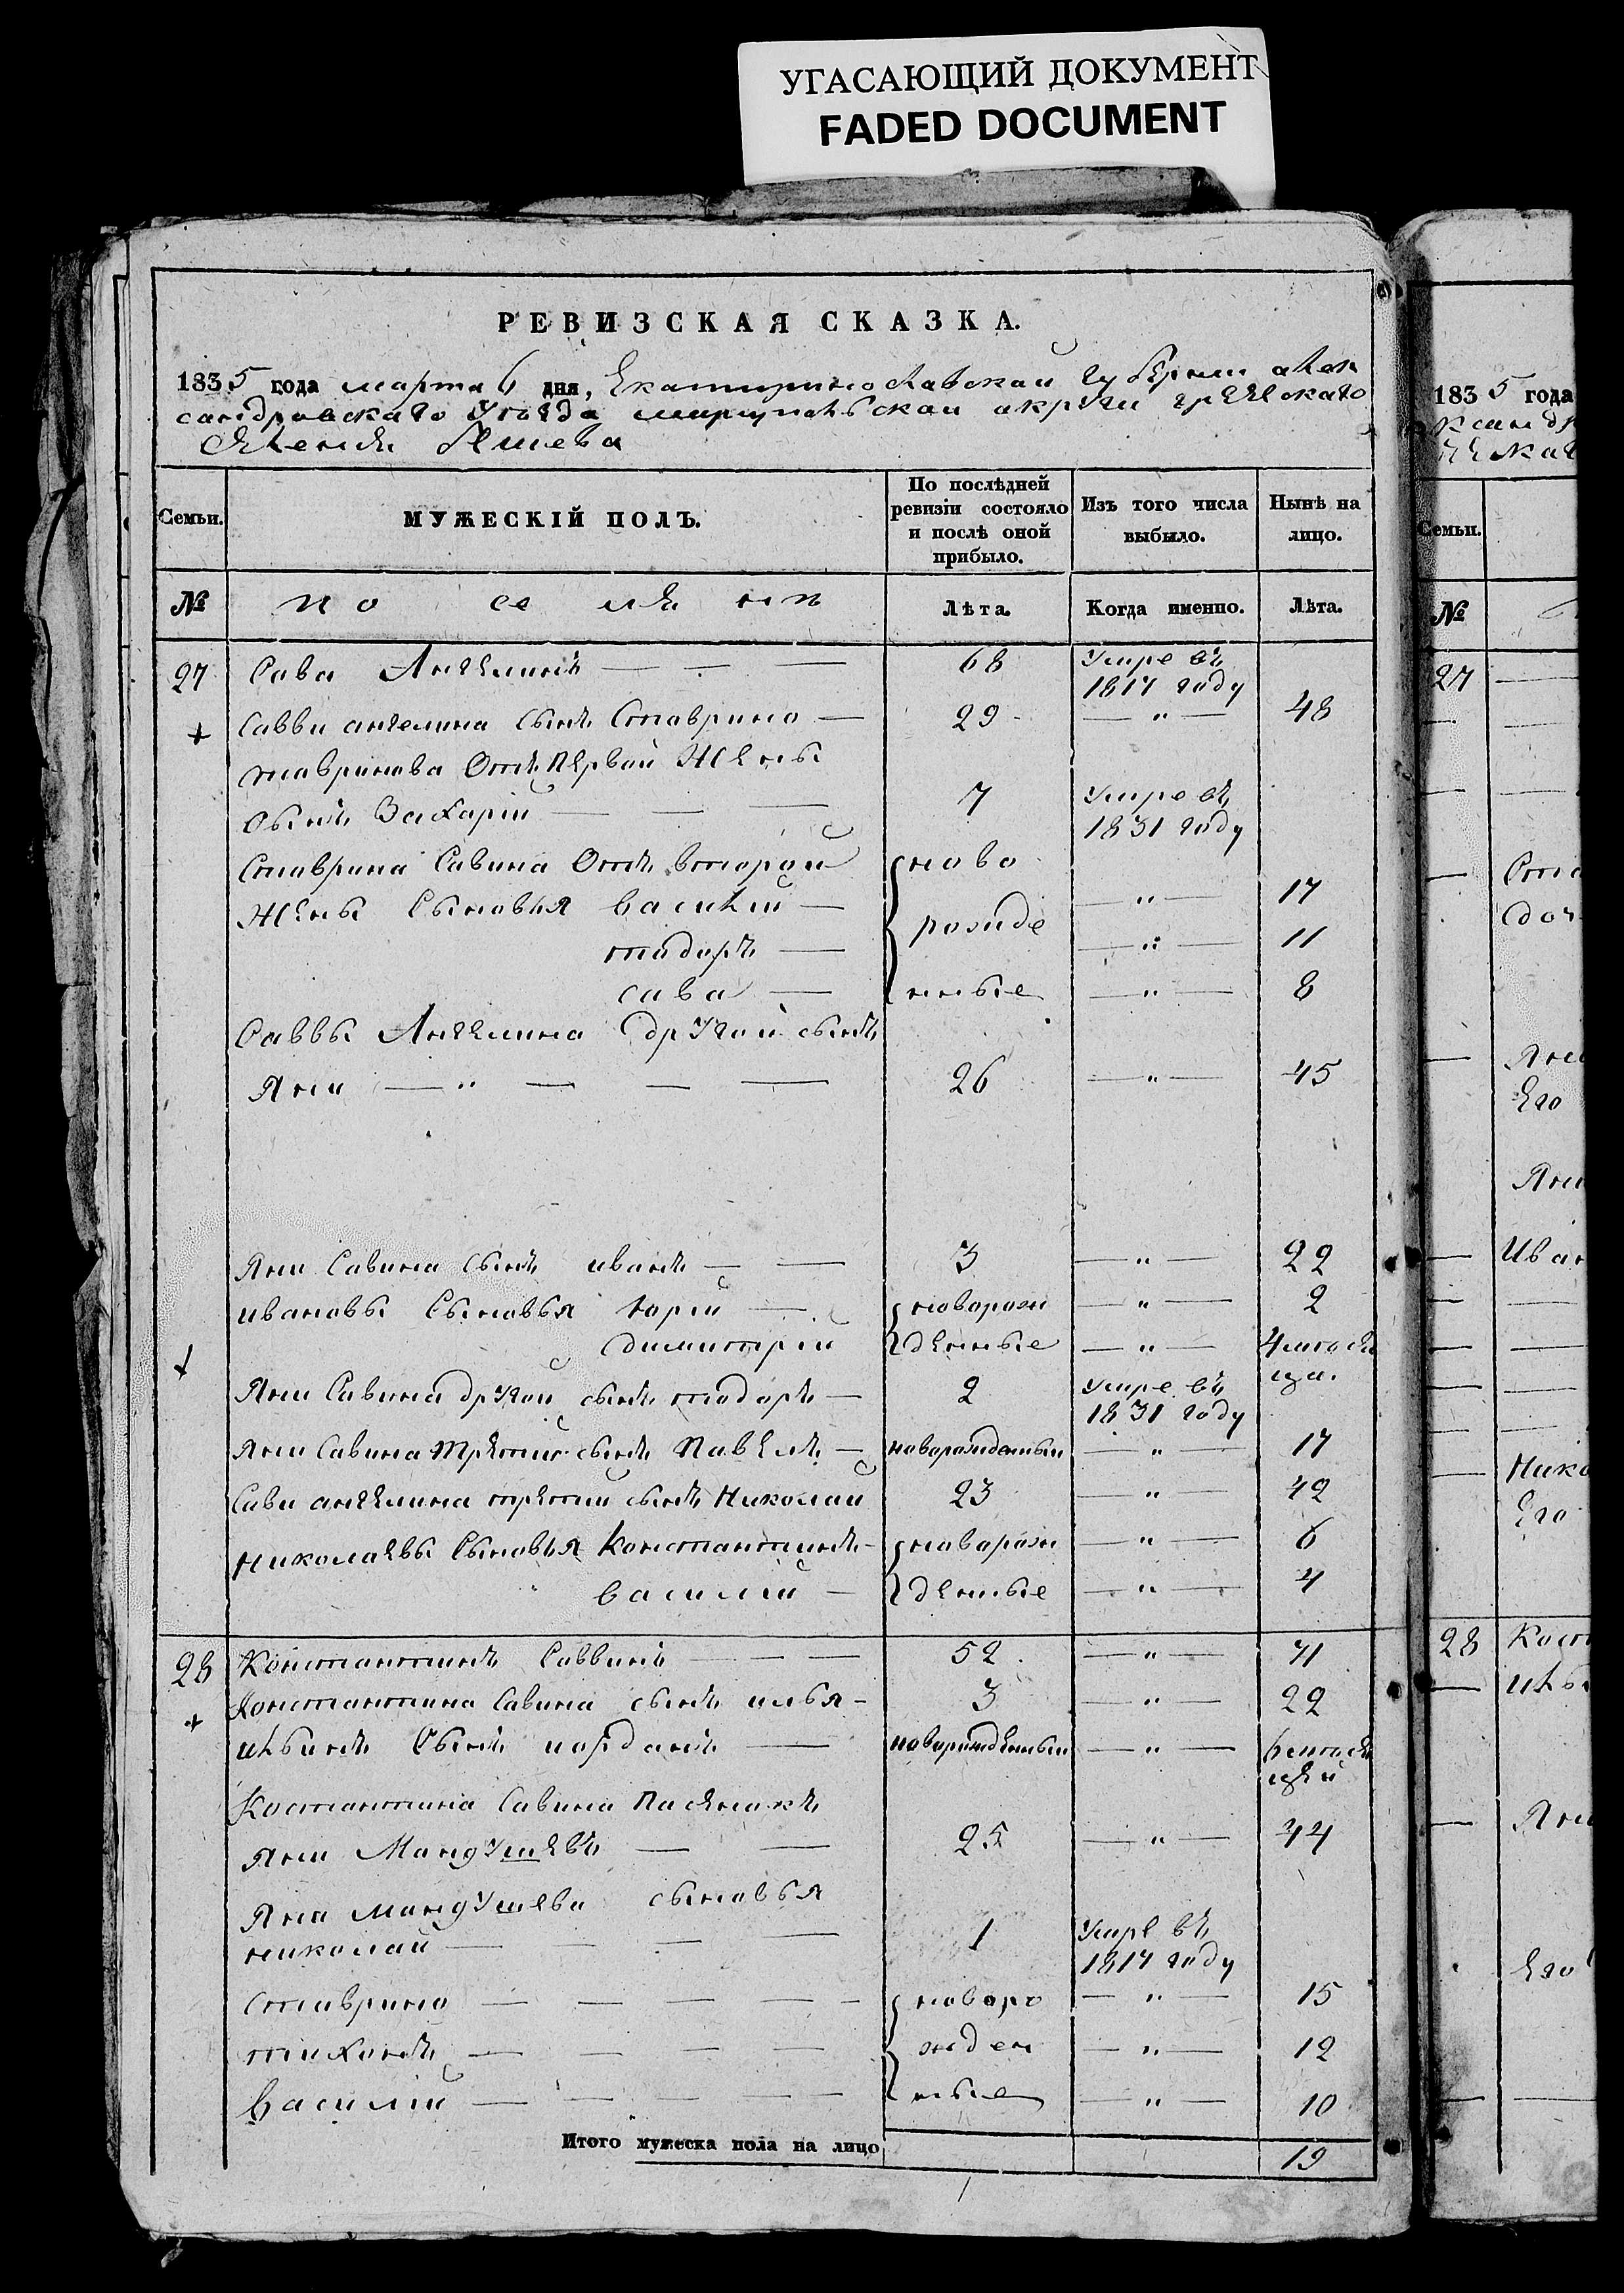 УГАСАЮЩИЙ ДОКУМЕНТ
FADED DOCUMENT
РЕВИЗСКАЯ СКАЗКА.
1835 года марта 6 дня, Екатеринославской губерни алек
сандровскаго уезда мариупольской округи греческаго
селения Яниева
Семьи.
МУЖЕСКІЙ ПОЛЪ.
По послѣдней ревизіи состояло и послѣ оной прибыло.
Изъ того числа выбыло.
Нынѣ на лицо.
№ по се ля нъ Лѣта. Когда именно. Лѣта.
27 Сава Ангелинъ — — — 68 Умре въ
1817 году
+ Савви ангелина сынъ Ставрино — 29 — " — 48
тавринова Отъ первой Жены
сынъ Захарій — — — 7 Умре въ
1831 году
Ставрина Савина Отъ второй ново
Жены Сыновья василій — — " — 17
тодоръ — рожде — " — 11
сава — нные — " — 8
Саввы Ангелина другой сынъ
Яни — " — — — 26 — " — 45
Яни Савина сынъ иванъ — — 3 — " — 22
ивановы Сыновья юрій — новорож — " — 2
димитрій денные — " — 4 меся
ца.
Яни Савина другой сынъ тодоръ — 2 умре въ
1831 году
Яни Савина третий сынъ Павелъ — новорожденный — " — 17
Сави ангелина третий сынъ Николай 23 — " — 42
николаевы Сыновья Константинъ — новорож — " — 6
василий — денные — " — 4
28 Константинъ Саввинъ — — — 52 — " — 71
+ Константина Савина сынъ илья — 3 — " — 22
ильинъ Сынъ иорданъ — новорожденный — " — 6 меся
цей
Костантина Савина Пасынакъ
Яни Мандушевъ — — 25 — " — 44
Яни Мандушева сыновья
николай — — — — 1 Умре въ
1817 году
ставрино — — — — — новоро — " — 15
тихонъ — — — — жден — " — 12
Василий — — — — — ные — " — 10
Итого мужеска пола на лицо 19
1835 года
№
Семьи.
27
Его
Яни
Иван
Нико
Его
28
Яни
Его